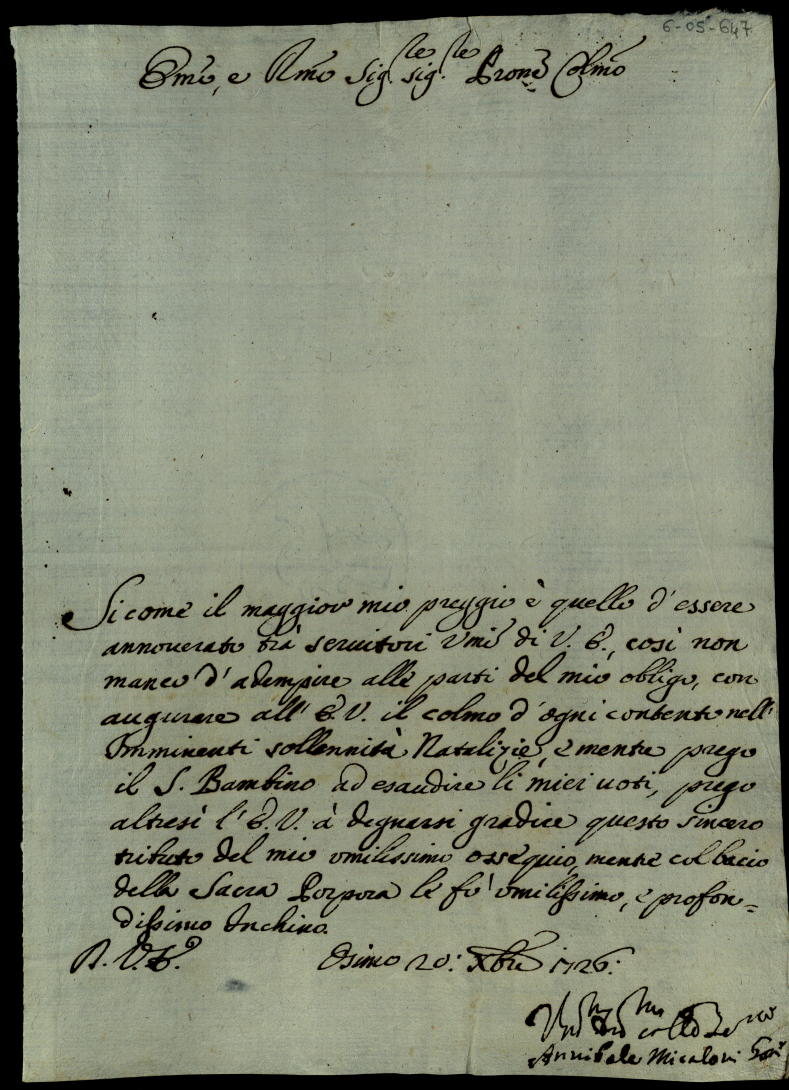 6-05-647
Emo, e Rmo Sig.re Sig.re Prone Colmo
Si come il maggior mio preggio è quello d'essere
annoverato trà servitori Vmi di V. E., così non
manco d'adempire alle parti del mio obligo, con
augurare all'E. V. il colmo d'ogni contento nell'
Imminenti sollennità Natalizie, e mentre prego
il S. Bambino ad esaudire li miei uoti, prego
altresì l'E. V. à degnarsi gradire questo sincero
tributo del mio vmilissimo ossequio, mentre col bacio
della Sacra Porpora le fò vmilissimo, e profon=
dissimo Inchino.
Osimo 20: Xbre 1726:
Annibale Micaloni